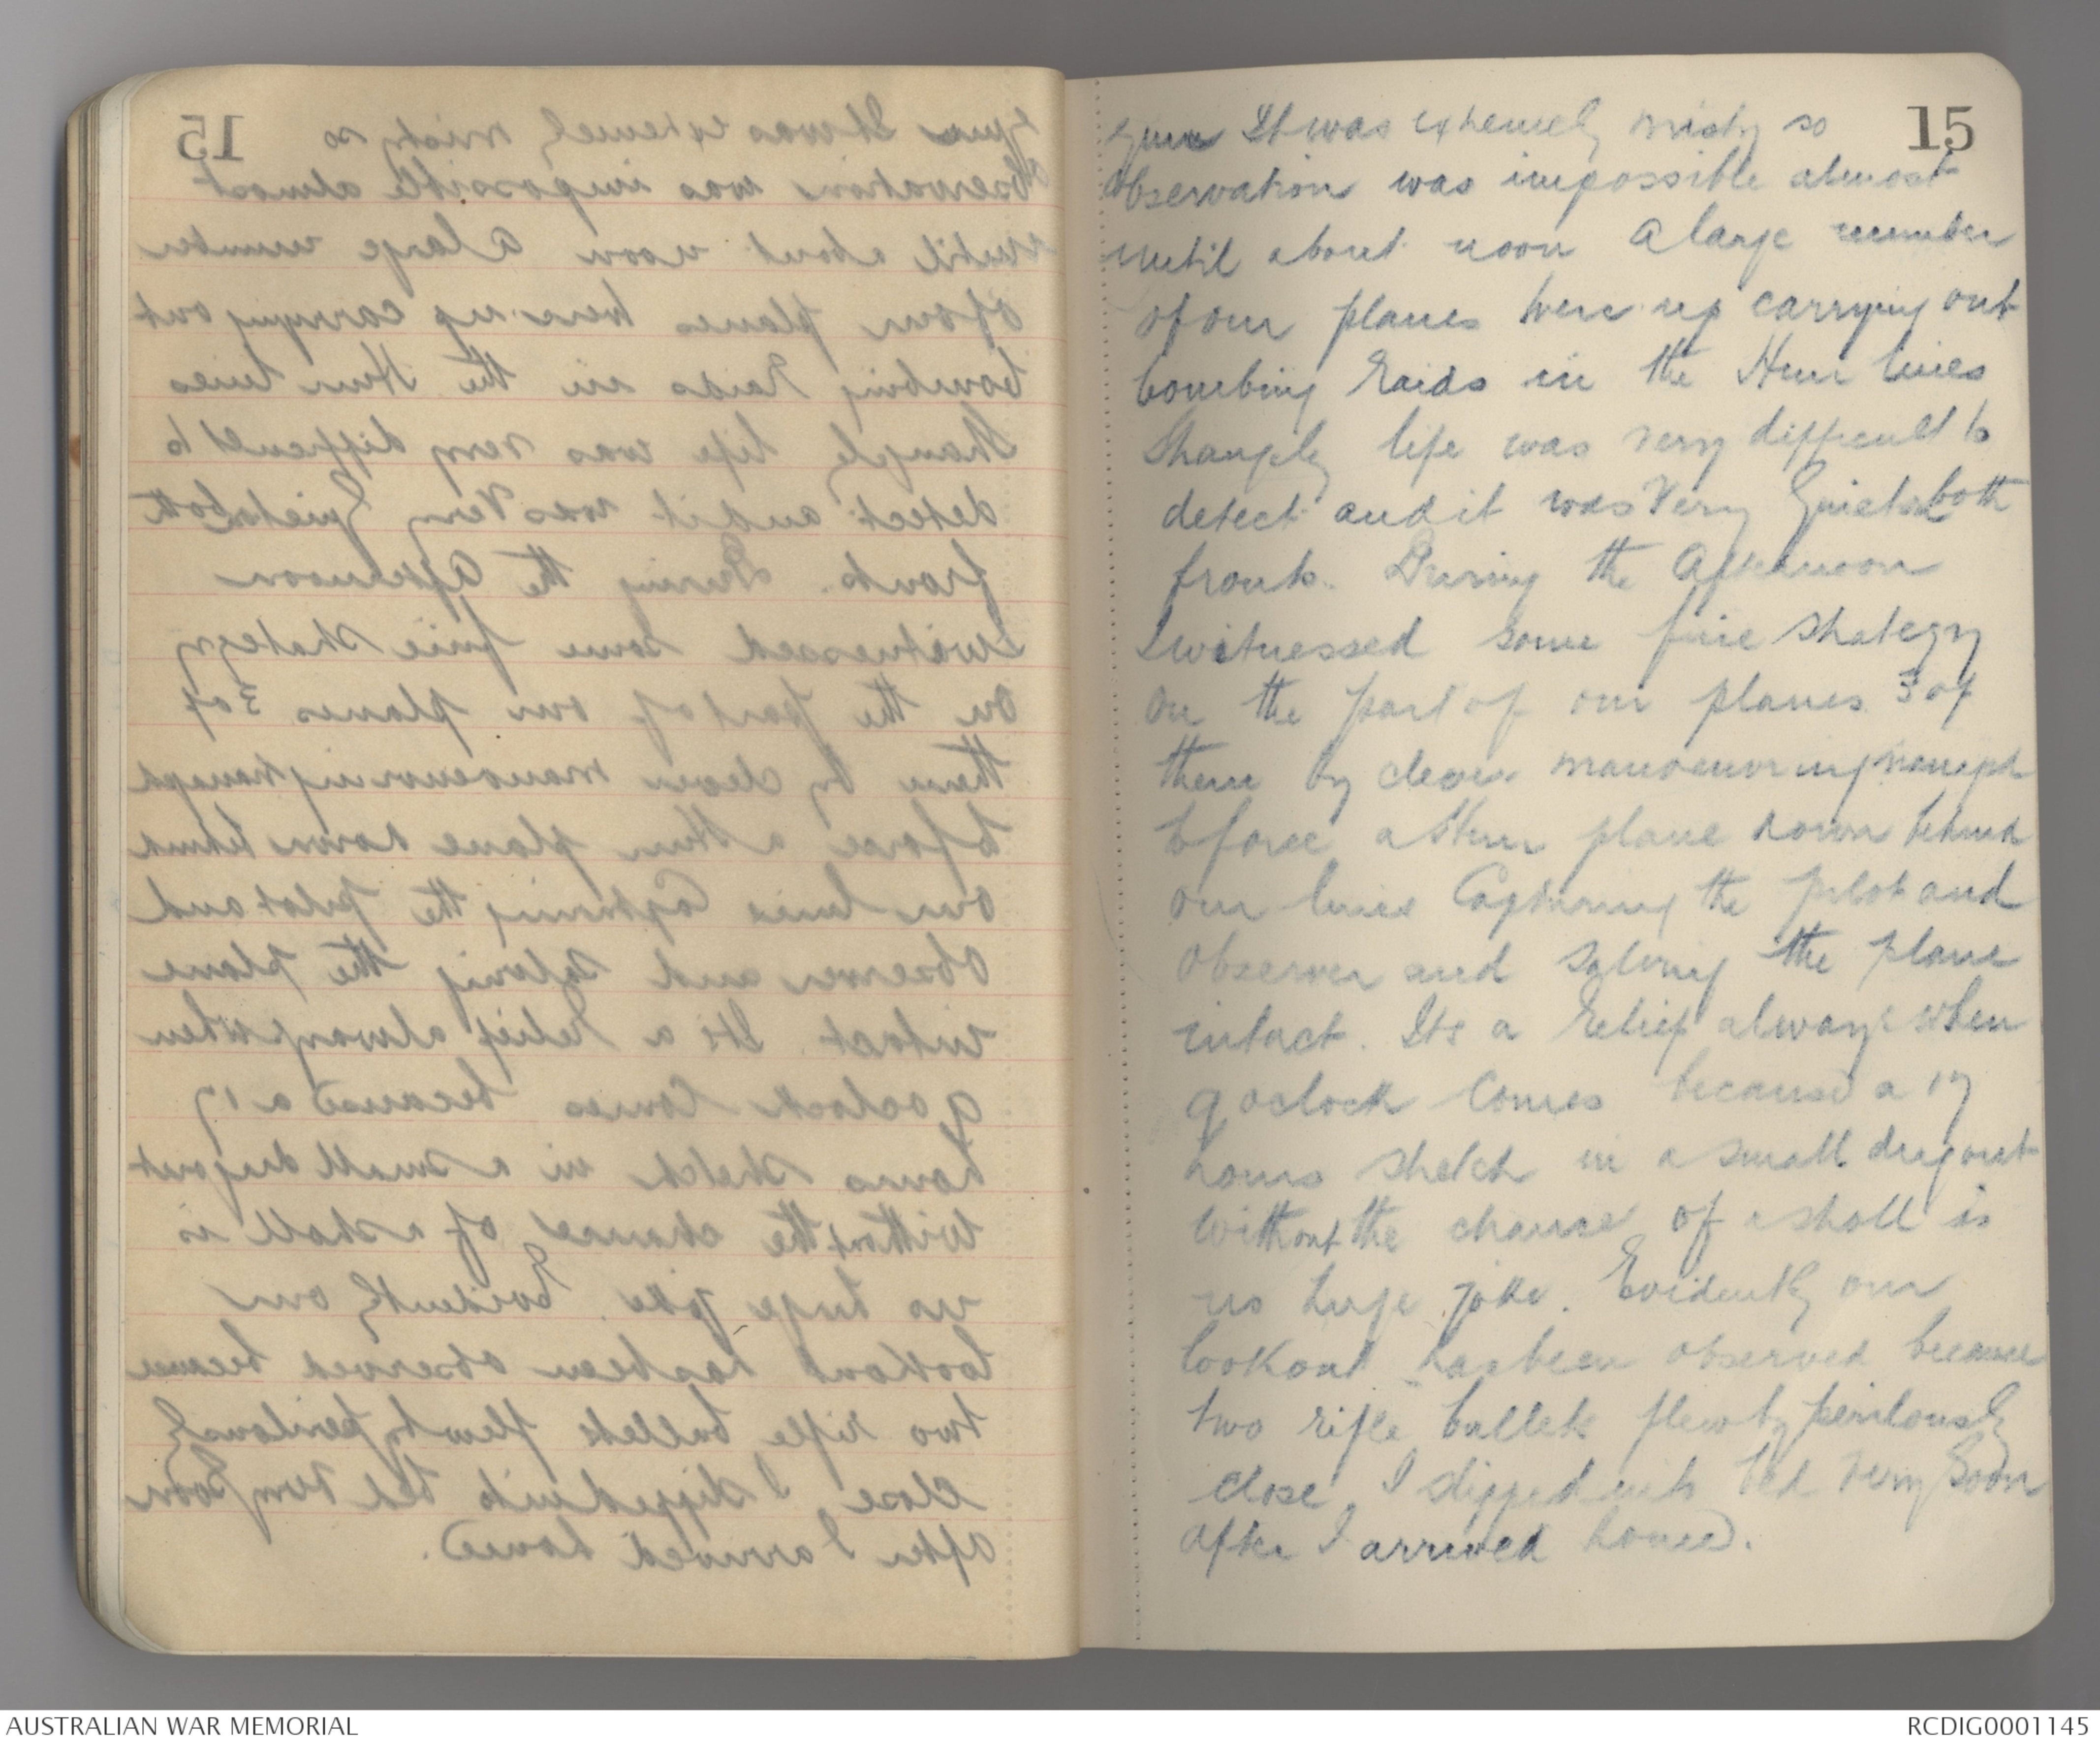 15
guns It was extremely misty so
observation was impossible almost
until about noon A large number
of our planes were up carrying out
bombing raids in the Hun lines
Strangely life was very difficult to
detect and it was very quiet on both
fronts. During the afternoon
I witnessed some fine strategy
on the part of our planes 3 of
them by clever manoeuvring managed
to force a Hun plane down behind
our lines Capturing the pilot and
observer and salving the plane
intact. Its a relief always when
9 oclock comes because a 17
hours stretch in a small dugout
without the chance of a stroll is
no huge joke. Evidently our
lookout has been observed because
two rifle bullets flew by perilously
close, I slipped into bed very soon
after I arrived home.
AUSTRALIAN WAR MEMORIAL
RCDIG0001145